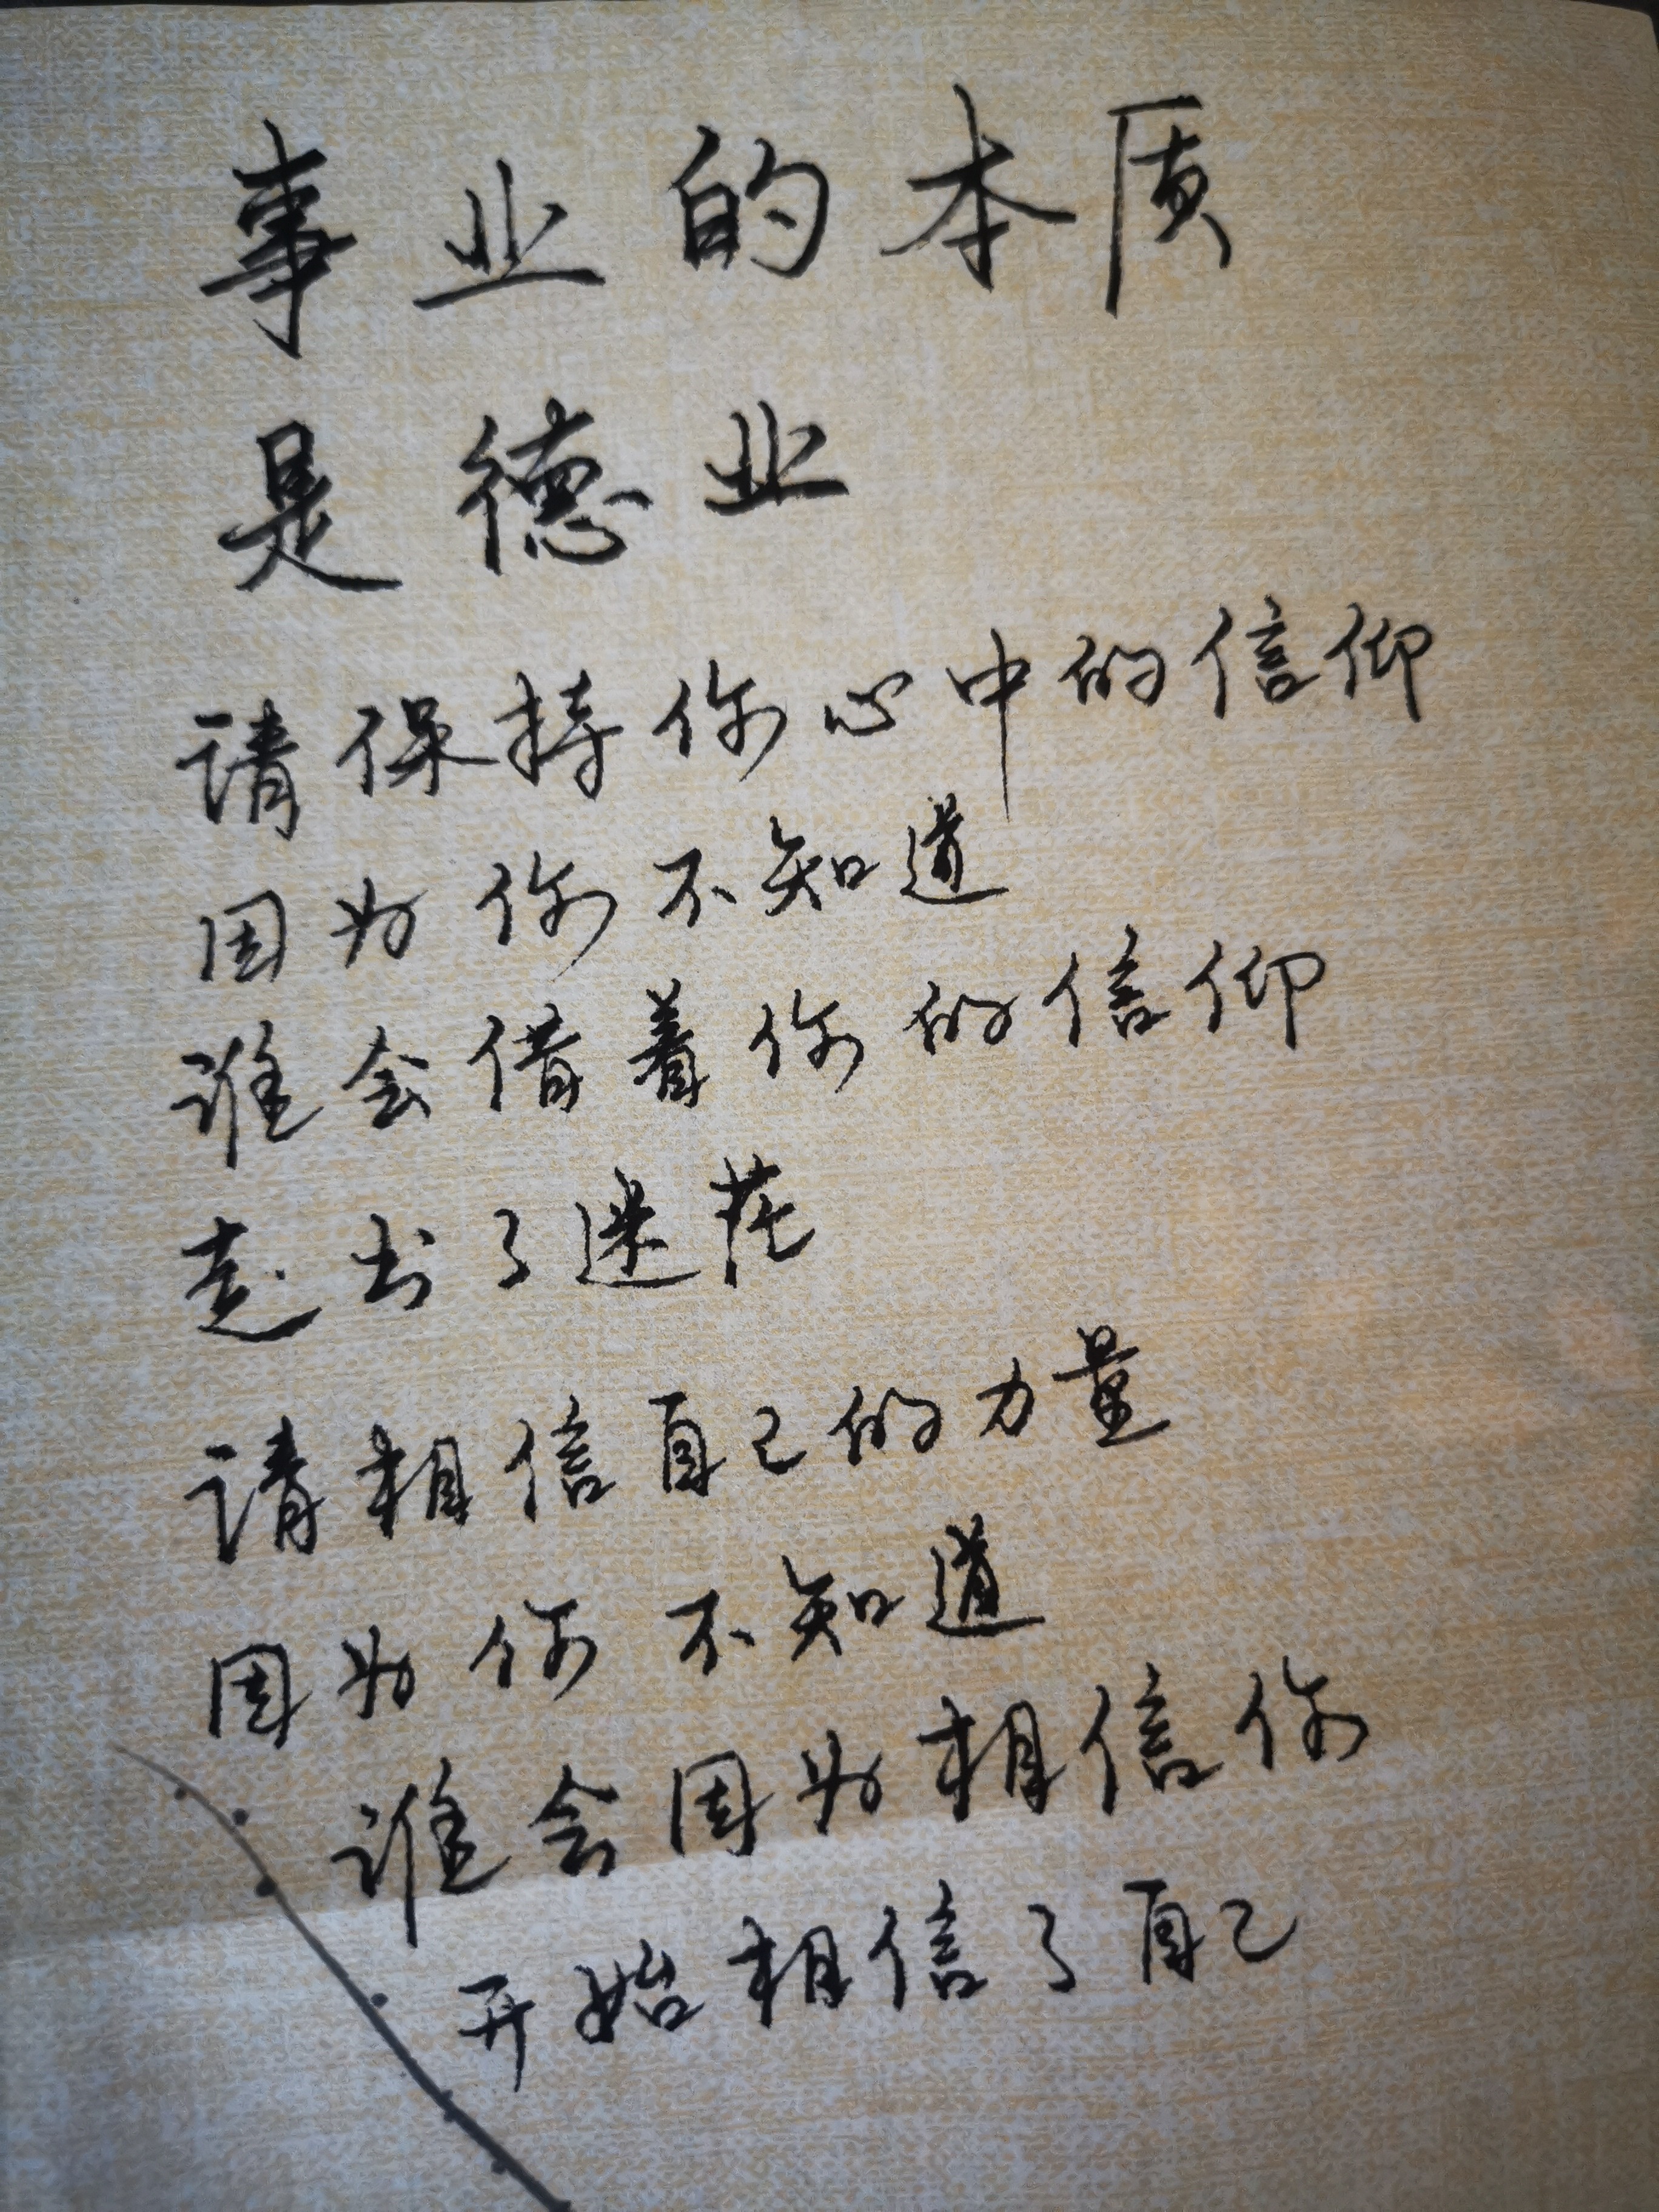 事业的本质
是德业
请保持你心中的信仰
因为你不知道
谁会借着你的信仰
走出了迷茫
请相信自己的力量
因为你不知道
谁会因为相信你
开始相信了自己